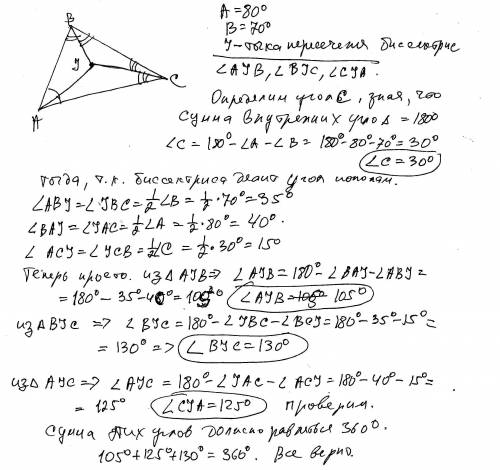 B
J
C
A
A = 80°
B = 70°
J - точка пересечения биссектрис
∠AJB, ∠BJC, ∠CJA.
Определим угол C, зная, что
сумма внутренних углов Δ = 180°
∠C = 180° - ∠A - ∠B = 180° - 80° - 70° = 30°
∠C = 30°
Тогда, т.к. биссектриса делит угол пополам.
∠ABJ = ∠JBC = 1/2 ∠B = 1/2 · 70° = 35°
∠BAJ = ∠JAC = 1/2 ∠A = 1/2 · 80° = 40°.
∠ACJ = ∠JCB = 1/2 ∠C = 1/2 · 30° = 15°
Теперь просто. из Δ AJB => ∠AJB = 180° - ∠BAJ - ∠ABJ =
= 180° - 35° - 40° = 105° ∠AJB = 105°
из Δ BJC => ∠BJC = 180° - ∠JBC - ∠BCJ = 180° - 35° - 15° =
= 130° => ∠BJC = 130°
из Δ AJC => ∠AJC = 180° - ∠JAC - ∠ACJ = 180° - 40° - 15° =
= 125° ∠CJA = 125° проверим.
Сумма этих углов должна равняться 360°.
105° + 125° + 130° = 360°. Все верно.